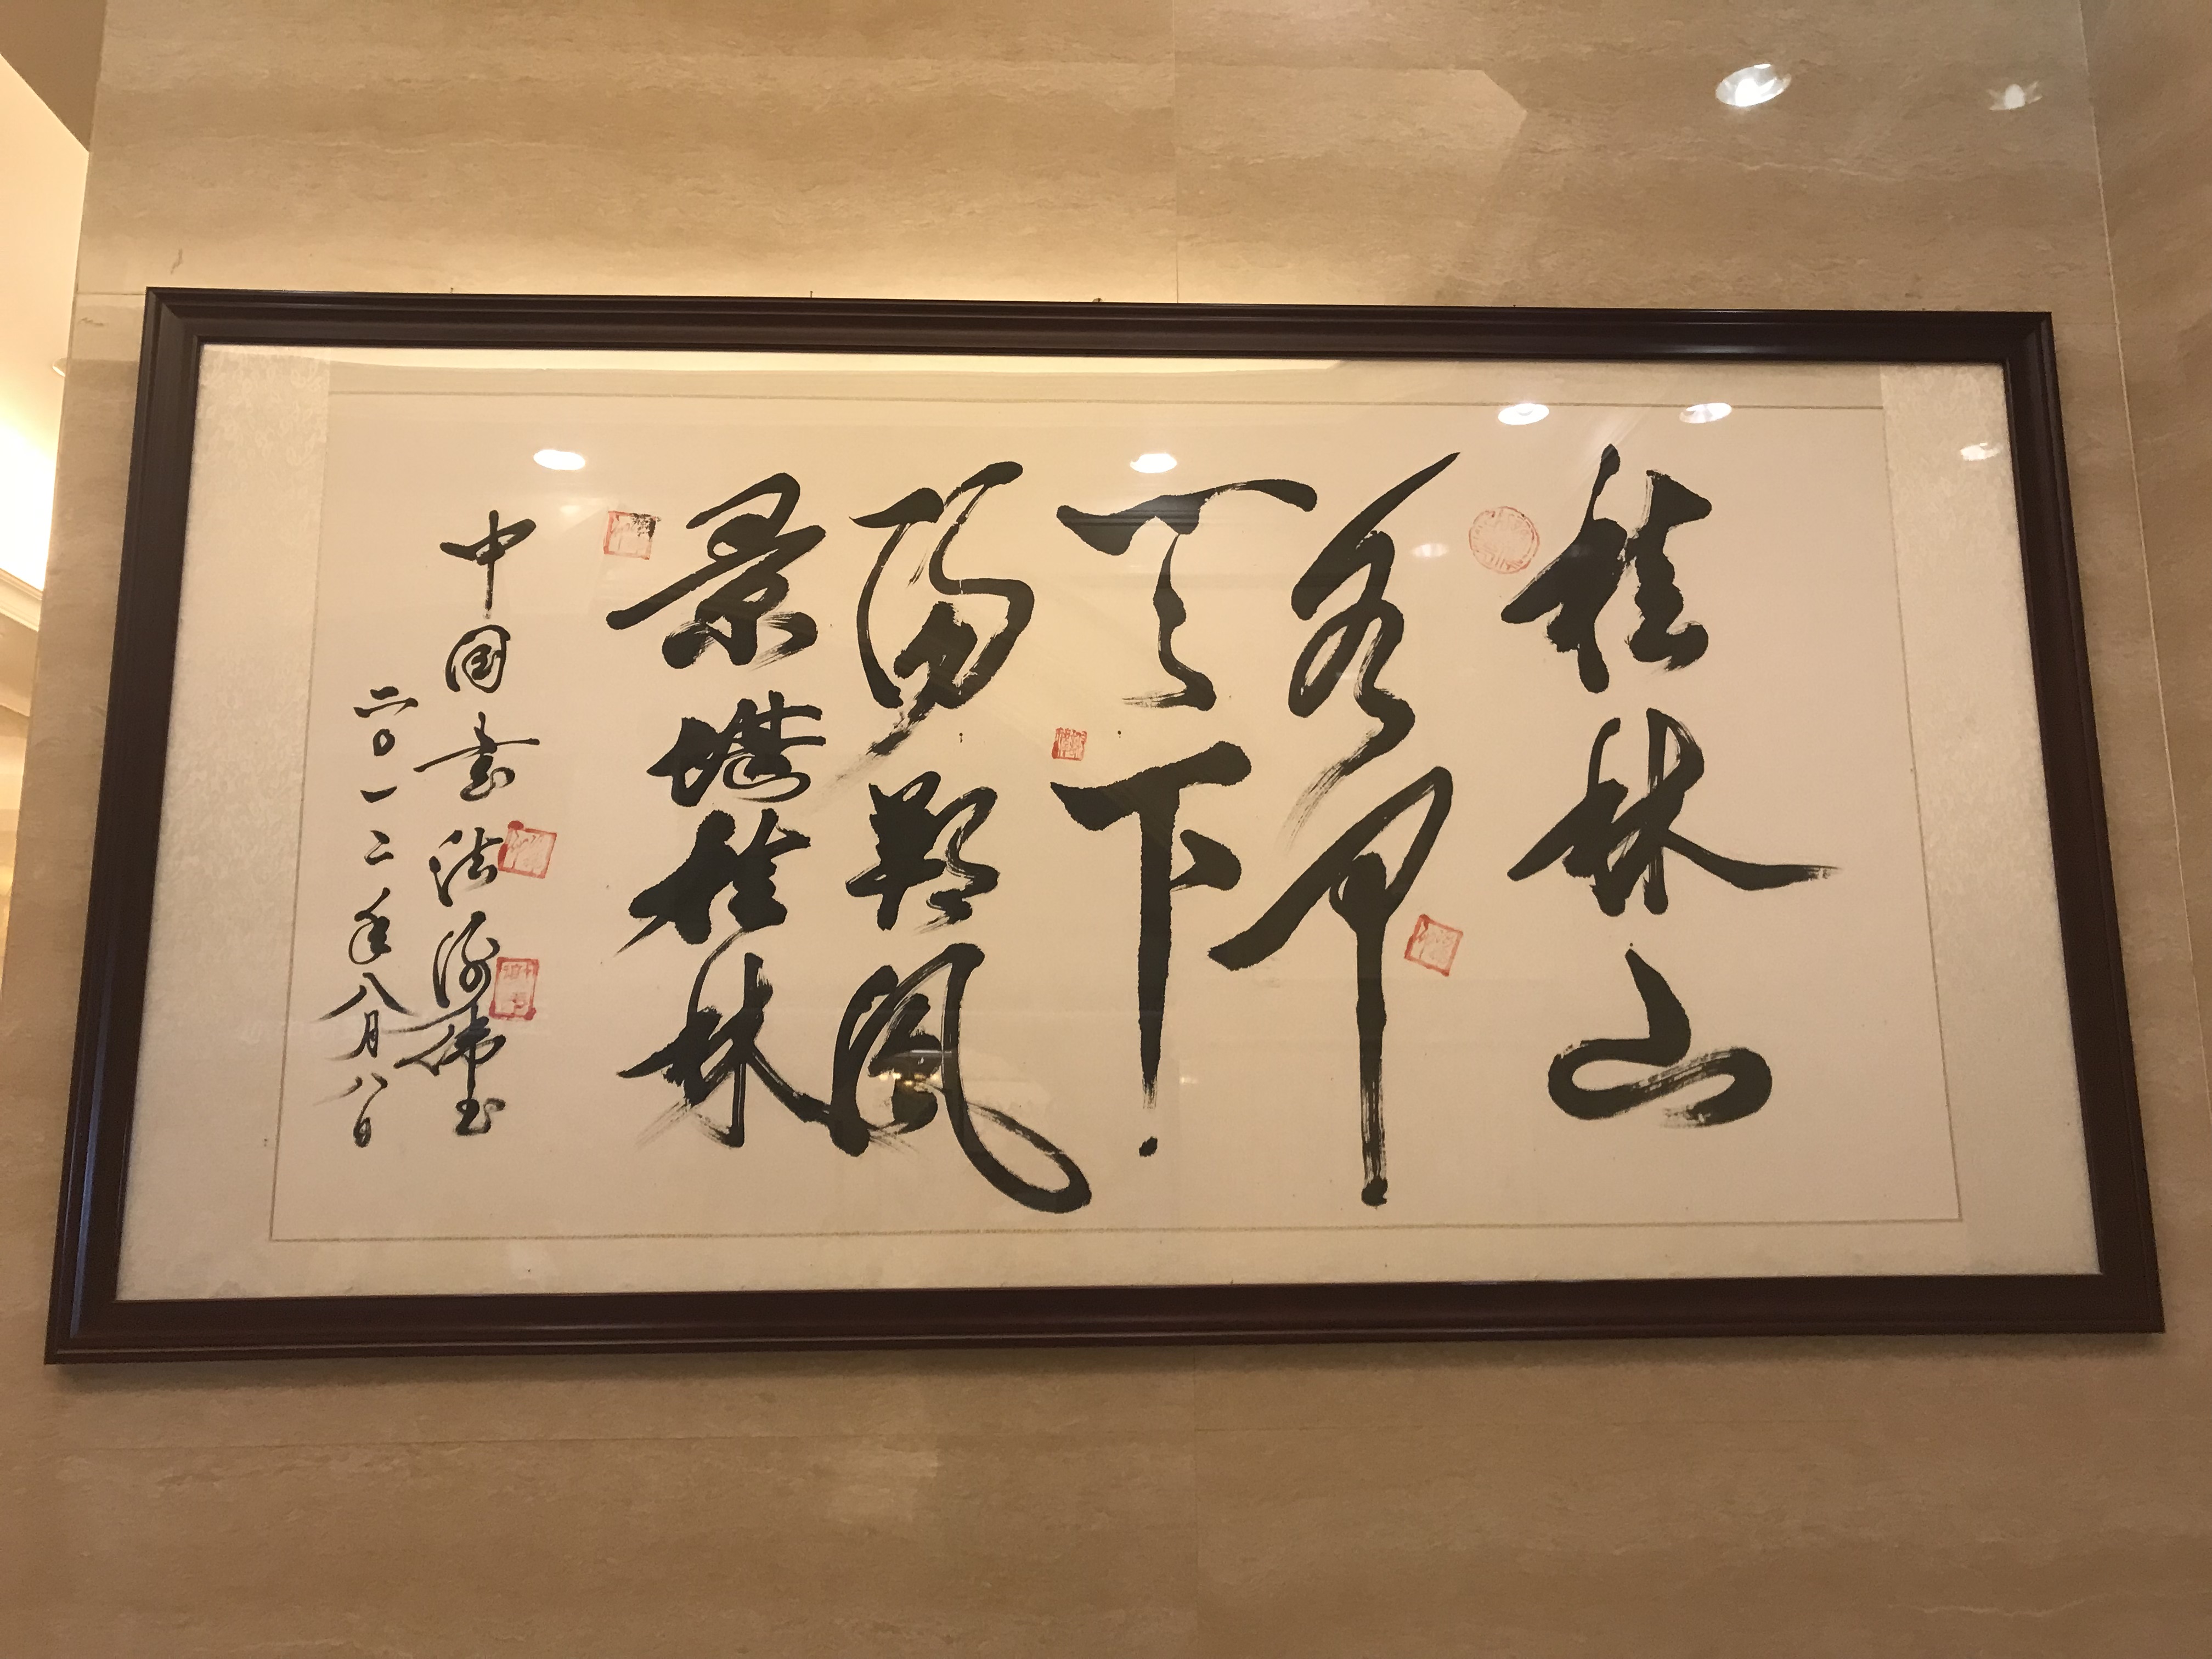 桂林山
水甲
天下
陽朔风
景堪桂林
中国書法
二〇一二年八月八日